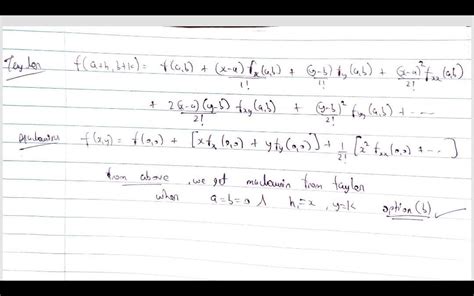 Taylor f(a+h, b+k) = f(a,b) + (x-a)/1! fx(a,b) + (y-b)/1! fy(a,b) + (x-a)²/2! fxx(a,b)
+ 2(x-a)(y-b)/2! fxy(a,b) + (y-b)²/2! fyy(a,b) + ----
f(x,y) = f(0,0) + [x fx(0,0) + y fy(0,0)] + 1/2! [x² fxx(0,0) + --- ]
from above, we get maclaurin from taylor
when a=b=0 h=x, y=k option (b)